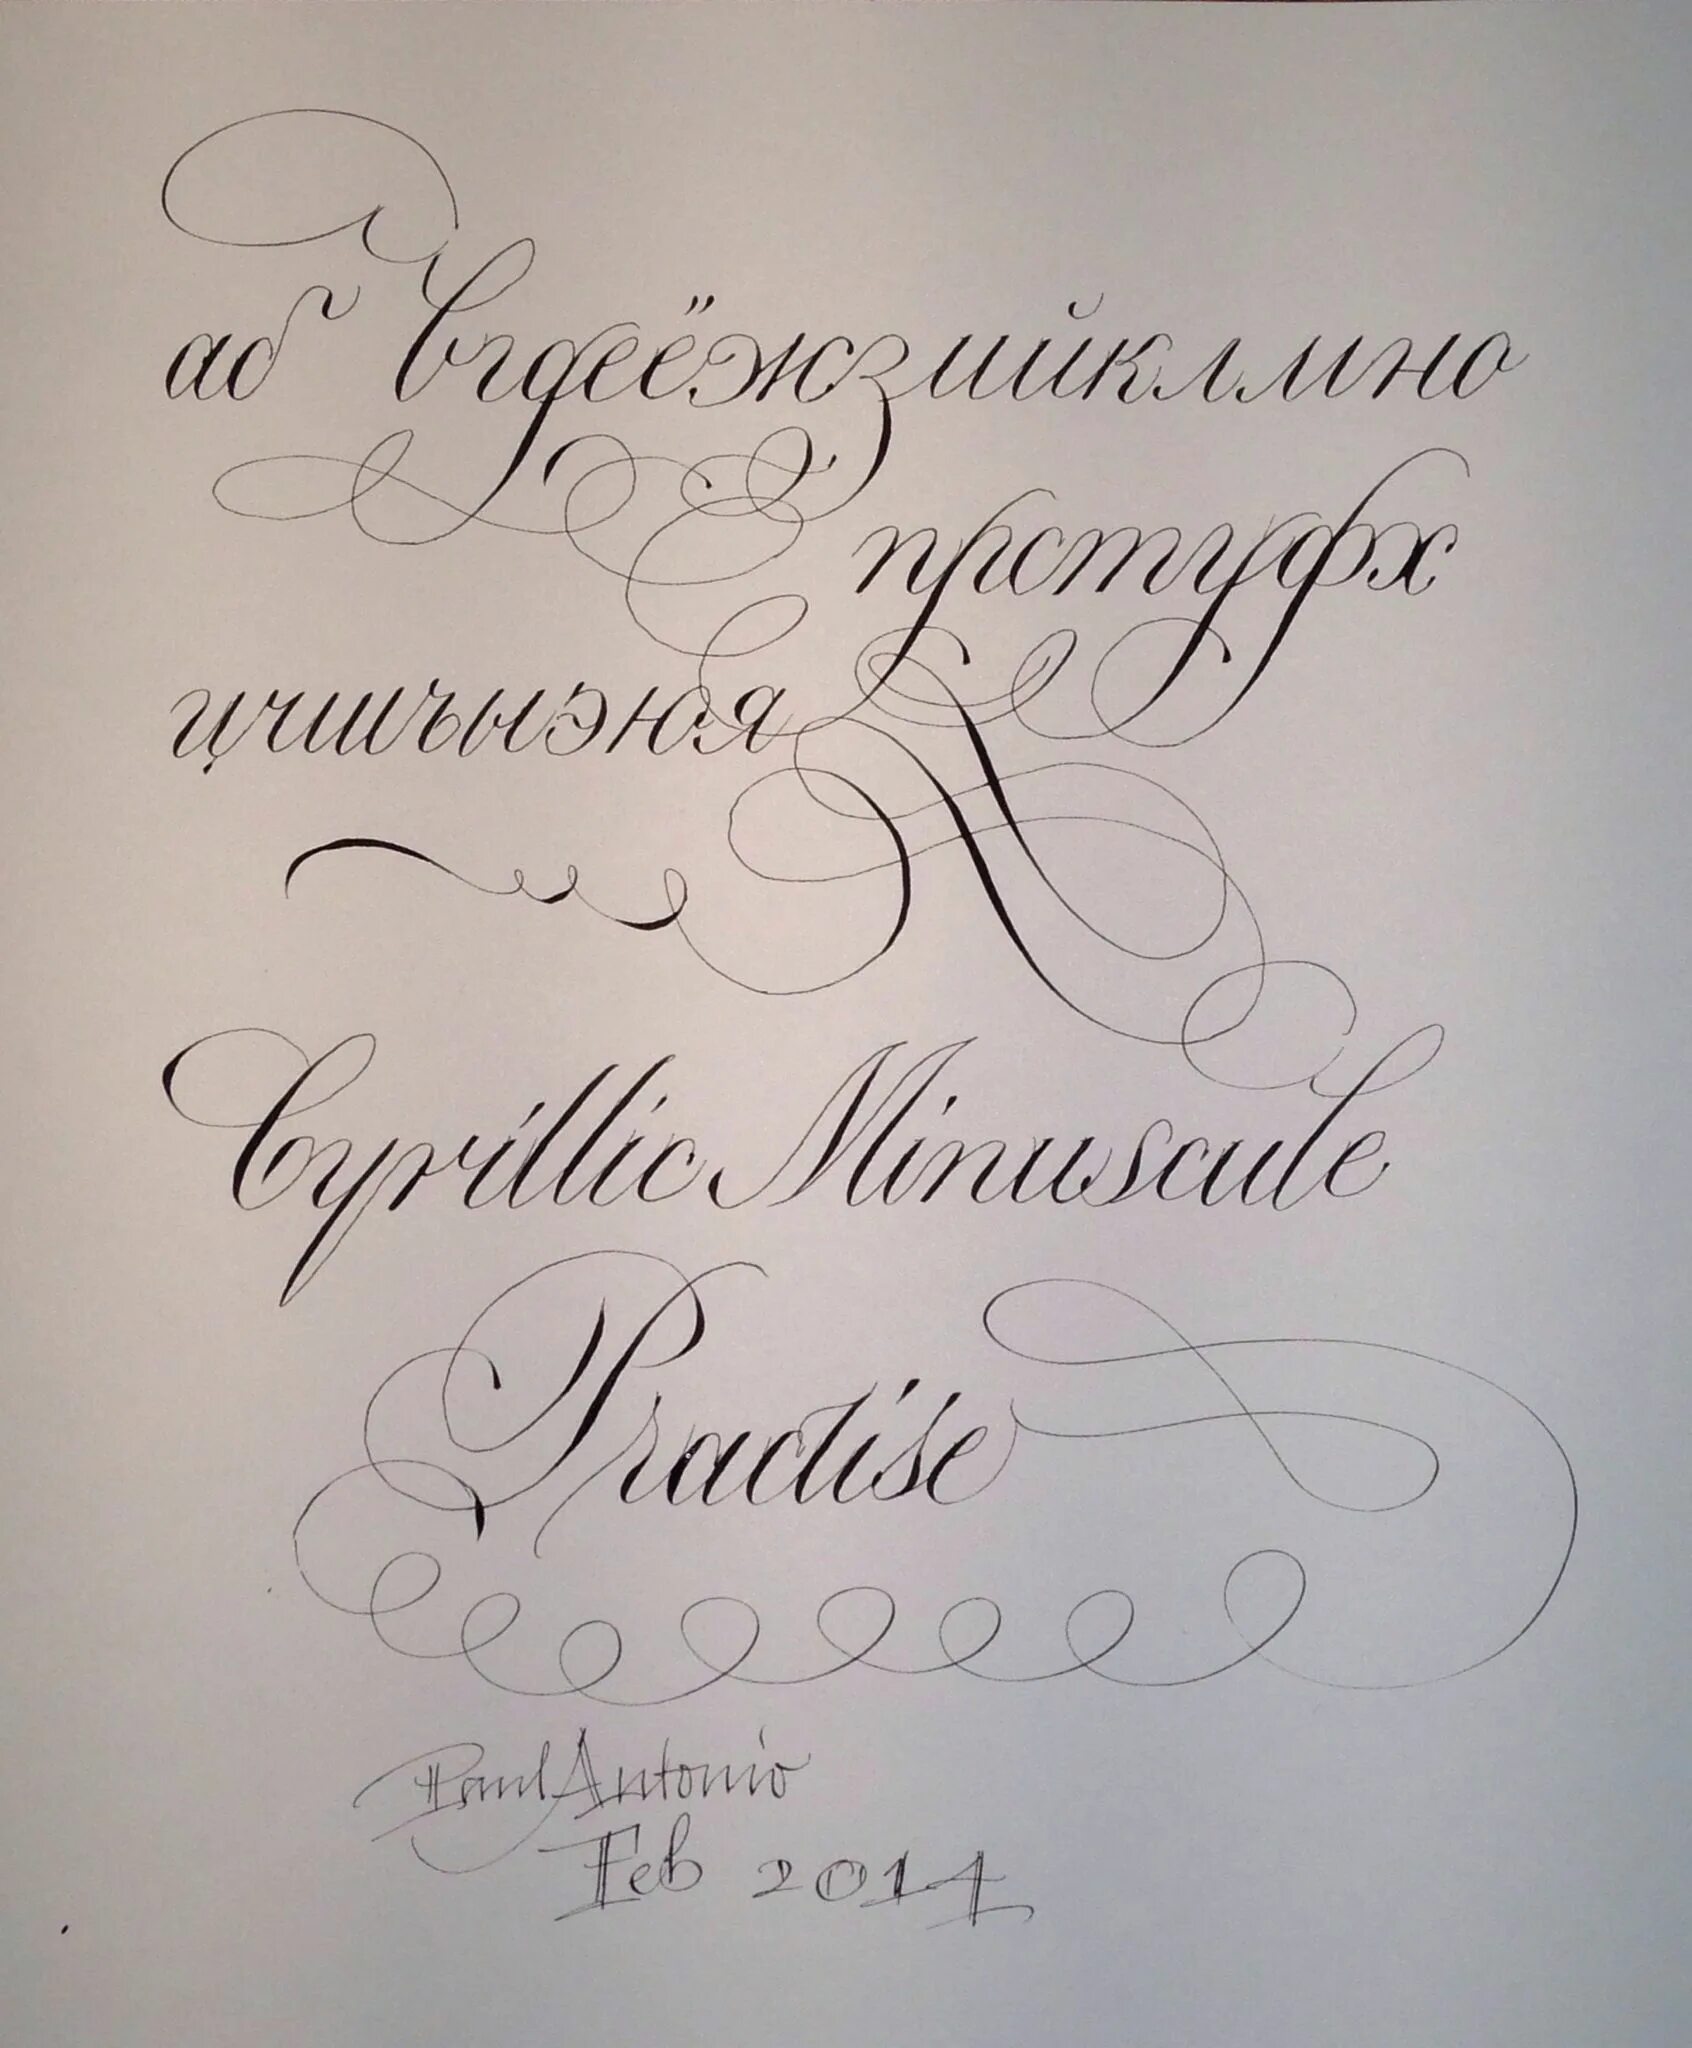 аб вгдеёжзийклмно
прстуфх
цчшъыэюя
Cyrillic Minuscule
Practise
Paul Antonio
Feb 2014